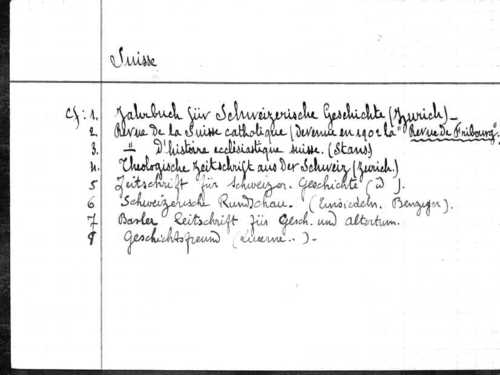 Suisse
Cf: 1. Jahrbuch für Schweizerische Geschichte (Zurich)_
2. Revue de la Suisse catholique (devenue en 1902 la "Revue de Fribourg".)
3. " D'histoire ecclésiastique suisse. (Stans)
4. Theologische Zeitschrift aus Der Schweiz (Zurich.)
5 Zeitschrift für Schweizer. Geschichte (id).
6 Schweizerische Rundschau. (Einsiedeln. Benziger).
7 Basler Zeitschrift für Gesch. und Altertum.
8 Geschichtsfreund (Lucerne..)._